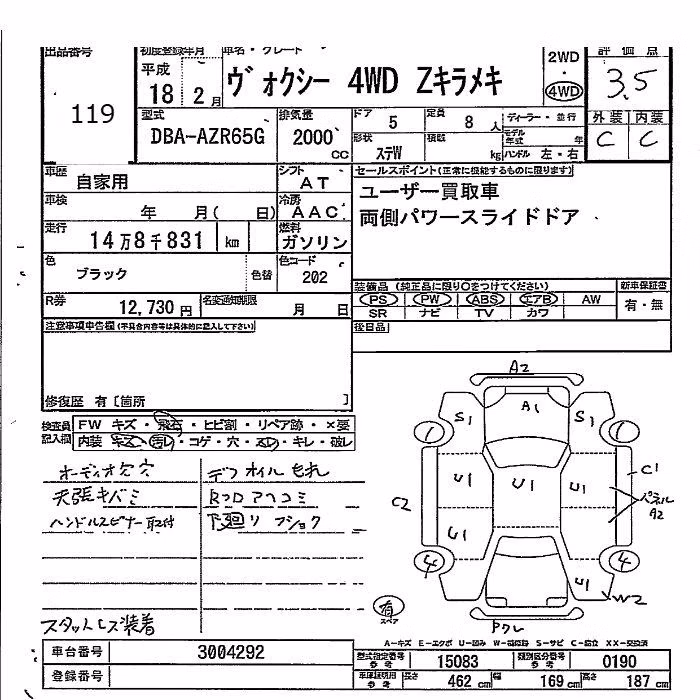 出品番号 初度登録年月 車名・グレード 評価点
119 平成 18 2月 ヴォクシー 4WD Zキラメキ 2WD・4WD 3.5
型式 排気量 ドア 5 定員 8人 ディーラー・並行 外装 内装
DBA-AZR65G 2000 CC 形状 ステW 積載 kg モデル年式 年 ハンドル 左・右 C C
車歴 自家用 シフト AT セールスポイント(正常に機能するものに限ります)
車検 年 月( 日) 冷房 AAC ユーザー買取車
走行 14万8千831 km 燃料 ガソリン 両側パワースライドドア
色 ブラック 色替 色コード 202 装備品 (純正品に限り○をつけてください) 新車保証書
R券 12,730円 名変通知期限 月 日 PS PW ABS エアB AW 有・無
SR ナビ TV カワ
注意事項申告欄(不具合内容等は具体的に記入して下さい) 後日品
修復歴 有〔箇所 〕
検査員記入欄 FW キズ・飛石・ヒビ割・リペア跡・×要
内装 キズ・汚レ・コゲ・穴・スレ・キレ・破レ
オーディオ欠 穴 デフオイルもれ
天張キバミ
ハンドルスピナー取付 下廻り フショク
スタットレス装着
A2
A1
S1 S1
1 1
U1 U1 U1
C1
C2
パネル A2
U1
4 4
U1
W2
有 スペア
Pクレ
A-キズ E-エクボ U-凹み W-補修跡 S-サビ C-腐蝕 XX-交換済
車台番号 3004292 型式指定番号 参考 15083 類別区分番号 参考 0190
登録番号 車庫証明用 参考 長さ 462cm 幅 169cm 高さ 187cm